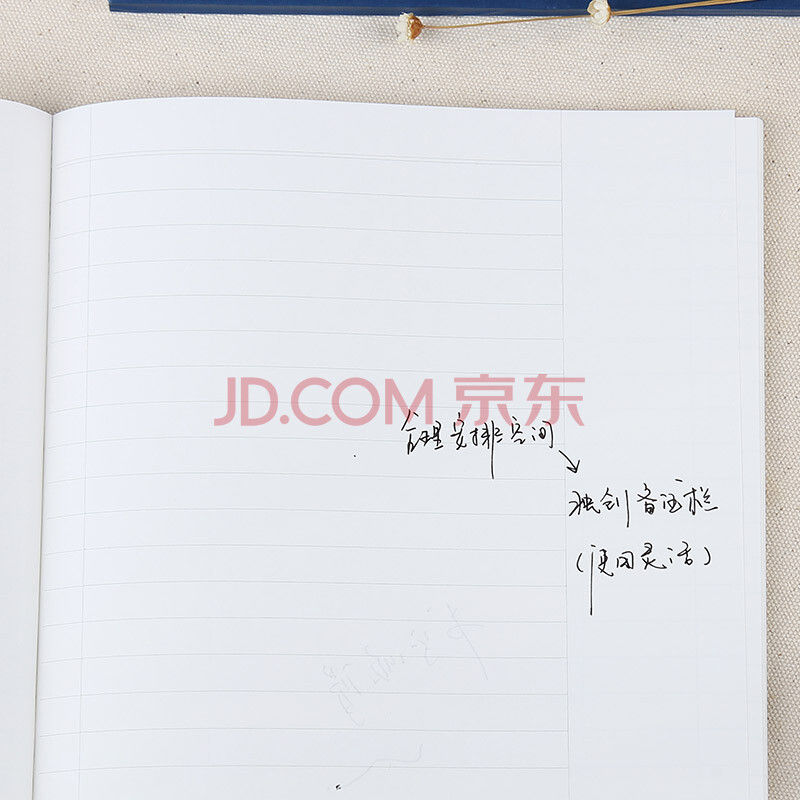 JD.COM 京东
合理安排空间
独创备注栏
(使用灵活)